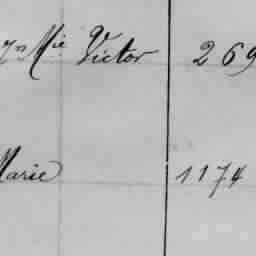 Mie Victor 269
Marie 1174